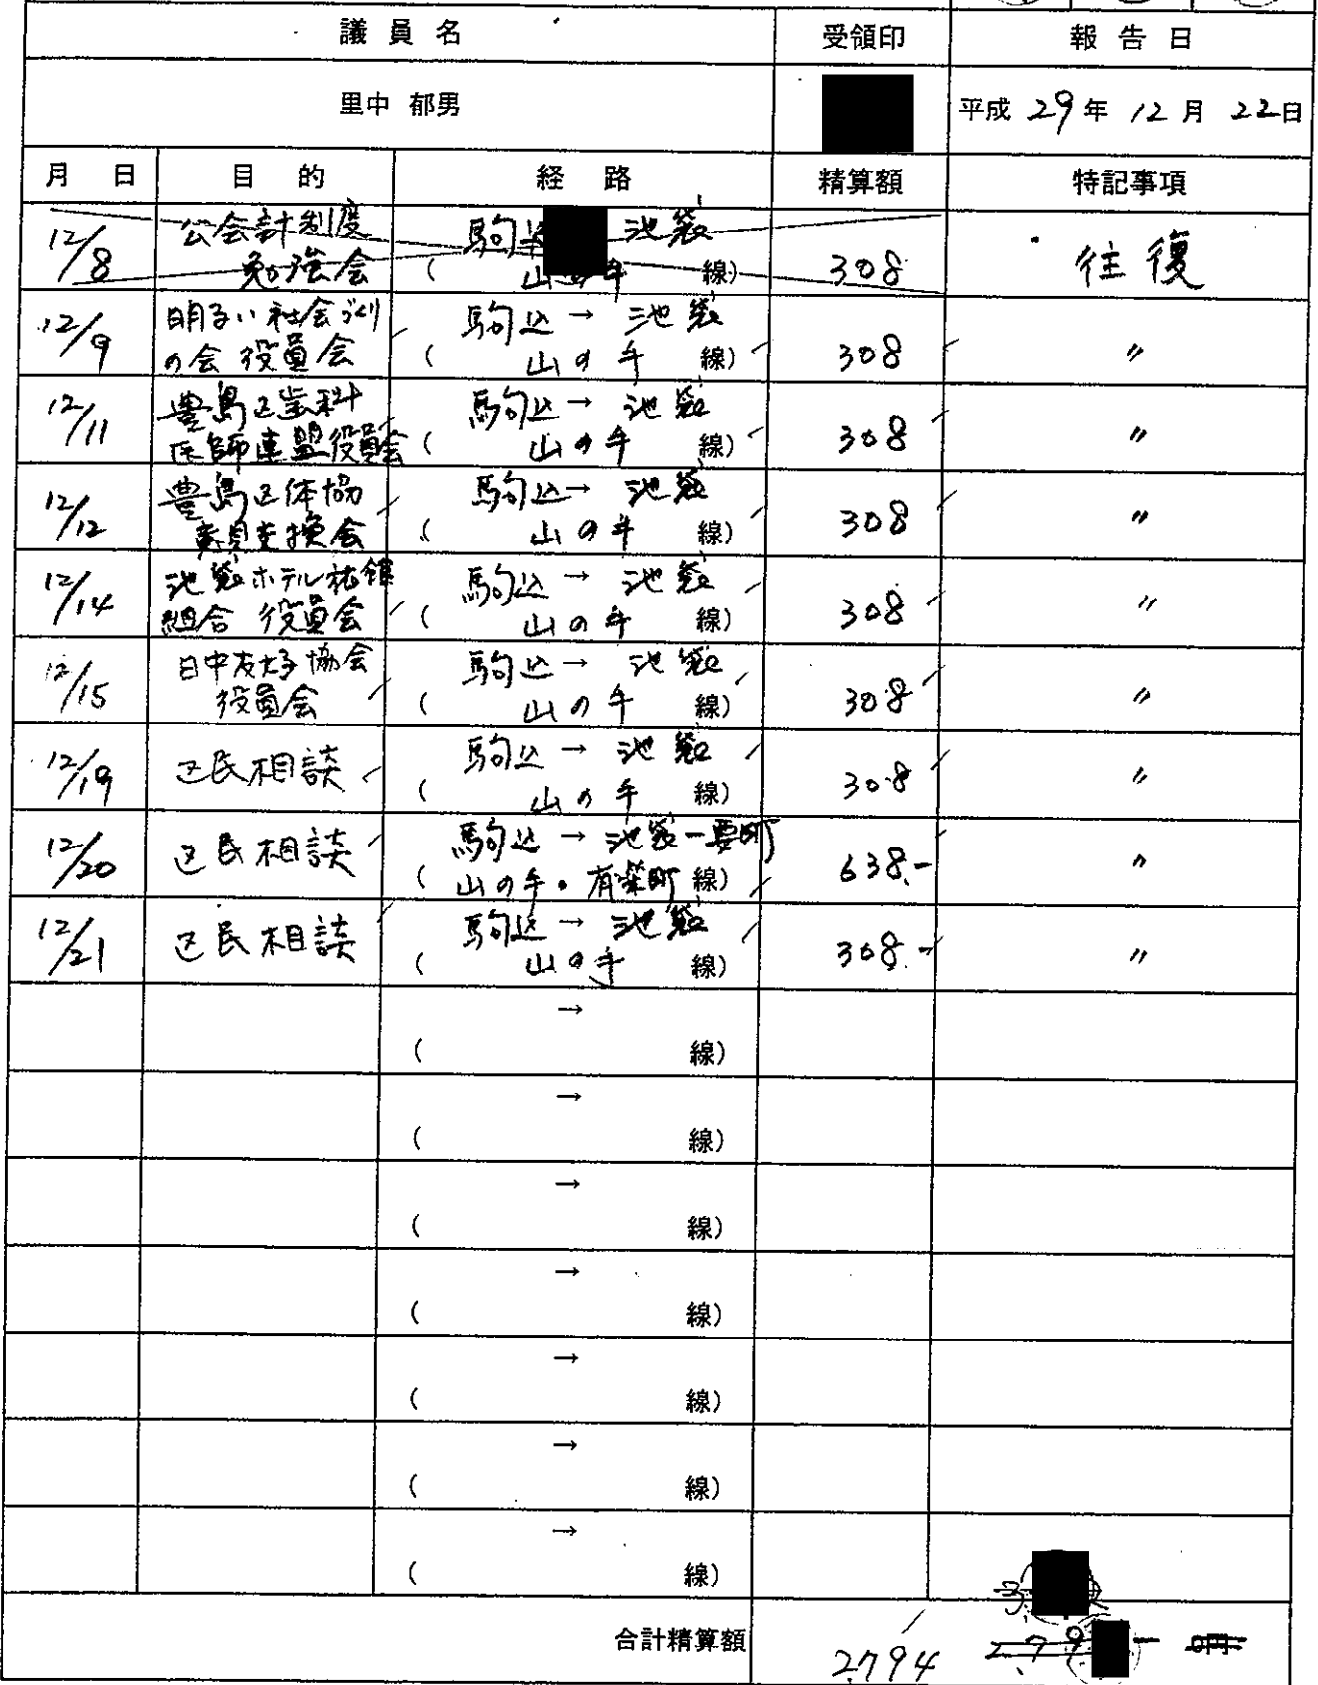 議員名 受領印 報告日
里中 郁男 平成 29年 12月 22日
月 日 目的 経路 精算額 特記事項
12/8 公会計制度 駒 池袋
勉強会 ( 山の手 線) 308 往復
12/9 明るい社会づくり 駒込 → 池袋
の会 役員会 ( 山の手 線) 308 〃
12/11 豊島区歯科 駒込 → 池袋
医師連盟役員会 ( 山の手 線) 308 〃
12/12 豊島区体協 駒込 → 池袋
意見交換会 ( 山の手 線) 308 〃
12/14 池袋ホテル旅館 駒込 → 池袋
組合 役員会 ( 山の手 線) 308 〃
12/15 日中友好協会 駒込 → 池袋
役員会 ( 山の手 線) 308 〃
12/19 区民相談 駒込 → 池袋
( 山の手 線) 308 〃
12/20 区民相談 駒込 → 池袋ー要町
( 山の手・有楽町 線) 638.- 〃
12/21 区民相談 駒込 → 池袋
( 山の手 線) 308.- 〃
→
( 線)
→
( 線)
→
( 線)
→
( 線)
→
( 線)
→
( 線)
→
( 線)
合計精算額 2,794